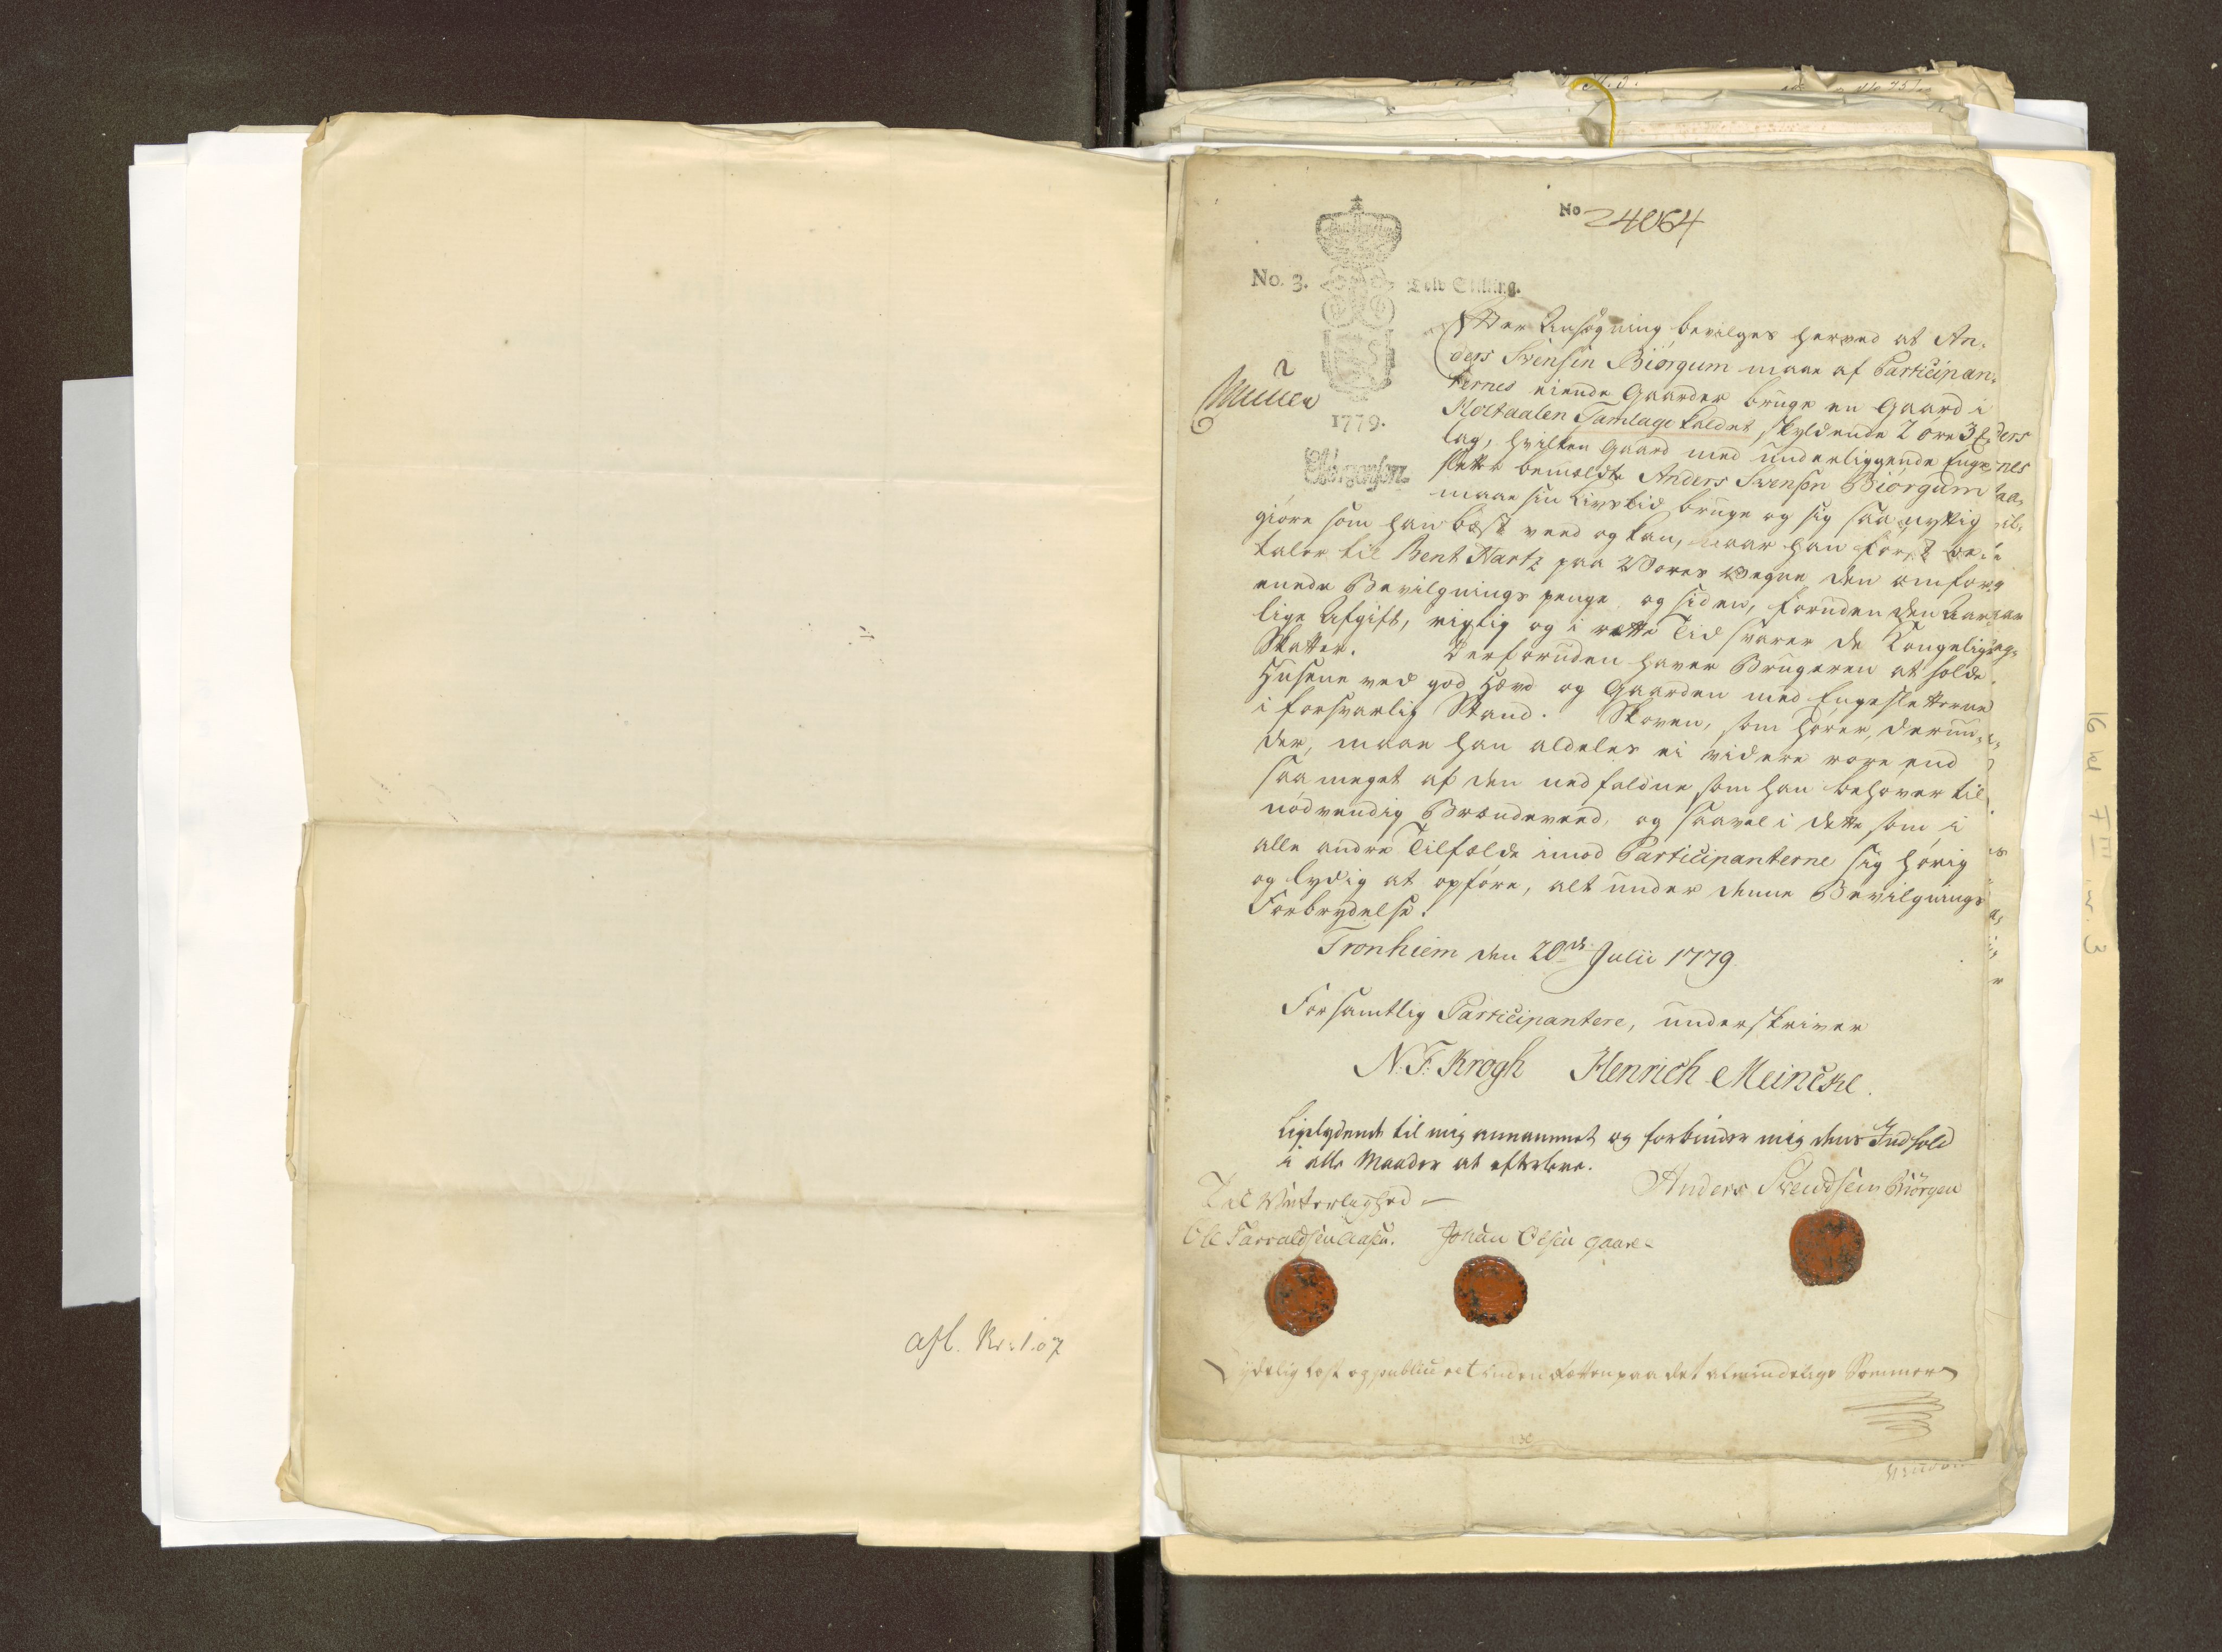 No 24064
No. 3. Tolv Skilling.
1779.
Efter Ansøgning bevilges herved at An-
ders Svensen Biörgum maae af Participan-
ternes eiende Gaarder bruge en Gaard i
Holtaalen Tamlage kaldet, skyldende 2 öre 3
lag, hvilken Gaard med underliggende Enge-
sletter bemeldte Anders Svensen Biörgum
maae sin Livstid bruge og sig saa nyttig
giöre som han bæst veed og kan, naar han först be-
taler til Bent Hartz paa Vores Vegne den omfor-
enede Bevilgnings penge og siden, foruden den Aar-
lige Afgift, rigtig og i rette Tid svarer de Kongelige
Skatter. Derforuden haver Brugeren at holde
Husene ved god Hævd og Gaarden med Engesletterne
i forsvarlig Stand. Skoven, som hörer derun-
der, maae han aldeles ei videre röre end
saa meget af den nedfaldne som han behöver til
nödvendig Brændeveed, og saavel i dette som i
alle andre Tilfælde imod Participanterne sig hörig
og lydig at opföre, alt under denne Bevilgnings
Forbrydelse.
Tronhiem den 20de Julii 1779
For samtlig Participantere, underskriver
N. F. Krogh Henrich Meincke.
Ligelydende til mig annammet og forbinder mig dens Indhold
i alle Maader at efterleve.
Anders Svendsen Biörgen
Til Vitterlighed
Ole Tarraldsen Aasen. Johan Olsen Gaare
ydelig læst og publiceret inden Retten paa det almindelige Sommer
afl. Nr. 107
16 kl F III nr. 3